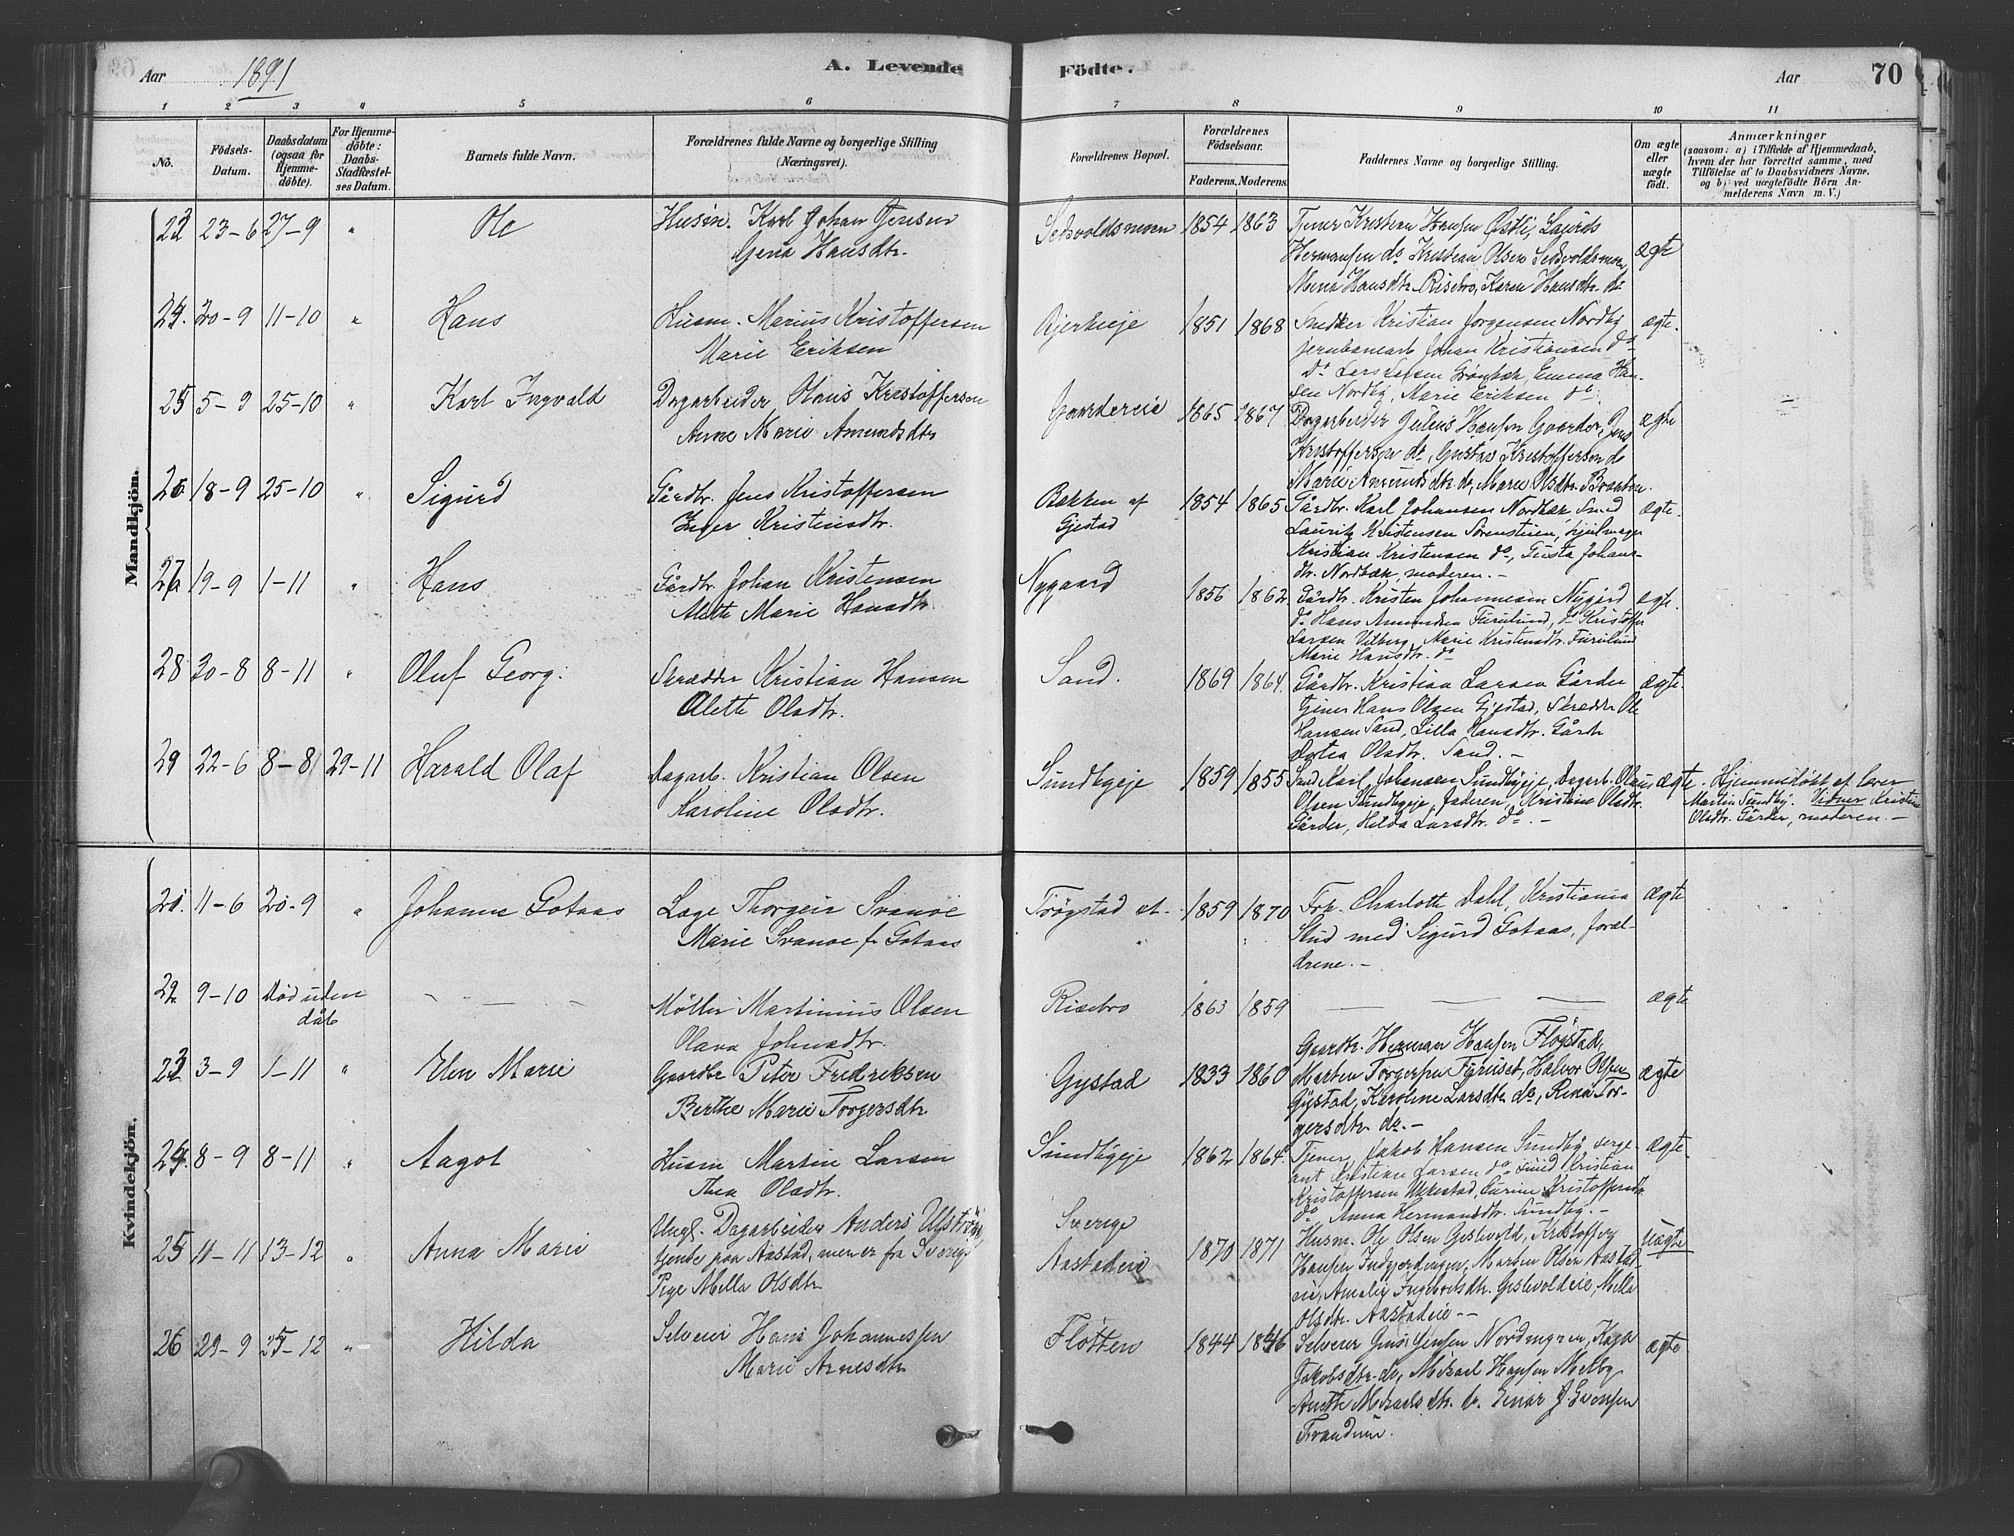 Aar 1891 A. Levende Födte. Aar 70
1 2 3 4 5 6 7 8 9 10 11
No. Födsels-Datum. Daabsdatum (ogsaa for Hjemme-döbte). For Hjemme-döbte: Daabs-Stadfæstel-ses Datum. Barnets fulde Navn. Forældrenes fulde Navne og borgerlige Stilling (Næringsvei). Forældrenes Bopæl. Forældrenes Födselsaar. Faderens. Moderens. Faddernes Navne og borgerlige Stilling. Om ægte eller uægte födt. Anmærkninger (saasom: a) i Tilfælde af Hjemmedaab, hvem der har forrettet samme, med Tilföielse af to Daabsvidners Navne, og b) ved uægtefödte Börn An-melderens Navn m. V.)
Mandkjön.
23 23-6 27-9 " Ole Husm. Karl Johan Jensen Sedsvoldsmoen 1854 1863 Tjener Kristian Hansen Østli, Laurits
Gina Hansdtr. Hermansen do Kristian Olsen Sedsvoldsmoen ægte
Mina Hansdtr. Risebro, Karen Hansdtr. do
24. 20-9 11-10 " Hans Husm. Marius Kristoffersen Bjerkeeje 1851 1868 Snedker Kristian Jørgensen Nordby ægte.
Marie Eriksen jernbanearb. Johan Kristiansen do
do Lars Grønbæk, Emma Han-
sen Nordby, Marie Eriksen do
25 5-9 25-10 " Karl Ingvald Dagarbeider Olaus Kristoffersen Gaardereie 1865 1867 Dagarbeider Julius Hansen Gaarder, Jens ægte
Anne Marie Amundsdtr. Kristoffersen do, Gustav Kristoffersen do
Marie Amundsdtr. do, Marie Olsdtr.
26 18-9 25-10 " Sigurd Gårdbr. Jens Kristoffersen Bakken af 1854 1865 Gårdbr. Karl Johansen Nordbæk Smed ægte.
Inger Kristensdtr. Gjestad Laurits Kristensen Sørenstuen, hjulmager
Kristian Kristensen do, Gusta Johans-
dtr. Nordbæk, moderen. -
27 19-9 1-11 " Hans Gårdbr. Johan Kristensen Nygaard 1856 1862 Gårdbr. Kristen Johannesen Nygård ægte.
Alette Marie Hansdtr. do Hans Amundsen Furulund, do Kristoffer
Larsen Vilberg, Marie Kristensdtr. Furulund
Marie Hansdtr. do
28 30-8 8-11 " Oluf Georg. Skrædder Kristian Hansen Sand. 1869 1864. Gårdbr. Kristian Larsen Gårder ægte.
Alette Olsdtr. tjener Hans Olsen Gjestad, Skrædder Ole
Hansen Sand, Lilla Hansdtr. Gårder
Dortea Olsdtr. Sand. -
29 22-6 8-8 29-11 Harald Olaf Dagarb. Kristian Olsen Sundbyeje 1859 1855 Smed Karl Johansen Sundbyeje, Dagarb. Olaus ægte Hjemmedøbt af lærer
Karoline Olsdtr. Olsen Sundbyeje, faderen, Kristine Olsdtr. Martin Sundby. Vidner Kristine
Gårder, Hilda Larsdtr. do. - Olsdtr. Gårder, moderen. -
Kvindekjön.
21. 11-6 20-9 " Johanne Gotaas Læge Thorgeir Svanøe Trøgstad et. 1859 1870 Frk. Charlotte Dahl, Kristiania ægte
Marie Svanøe f. Gotaas Stud med Sigurd Gotaas, foræl-
drene. -
22 9-10 Død uden - - - Møller Martinius Olsen Risebro 1863 1859 - - - ægte
dåb Olava Johnsdtr.
23 3-9 1-11 " Elen Marie Gaardbr Peter Fredriksen Gjestad 1833 1860 Gaardbr. Herman Hansen Fløgstad, ægte
Berthe Marie Torgersdtr. Marten Torgersen Fyruset, Halvor Olsen
Gjestad, Karoline Larsdtr. do, Rena Tor-
gersdtr. do. -
24. 8-9 8-11 " Aagot Husm Martin Larsen Sundbyeje 1862 1864. Tjener Jakob Hansen Sundby serge- ægte.
Thea Olsdtr. ant Kristian Larsen do Smed Kristian
Kristoffersen Ukkestad, Karine Kristoffersdtr.
do Anna Hermansdtr. Sundby. -
25 11-11 13-12 " Anna Marie Ungk. Dagarbeider Anders Sverige 1870 1871 Husm. Ole Olsen Gislevold, Kristoffer Uægte
tjente paa Aastad, men er fra Sverige Aastadeie Hansen Indgjerdingen, Marten Olsen Aastad-
Pige Mella Olsdtr. eie, Amalie Ingebretsdtr. Gislevoldeie, Mella
Olsdtr. Aastadeie. -
26 29-9 25-12 " Hilda Selveier Hans Johannessen Fløtten 1844 1846 Selveier Gusi Jensen Nordmyren, Kaja ægte
Marie Arnesdtr. Jakobsdtr. do, Mikael Hansen Melby
Anette Mikaelsdtr. do. Einar J. Svensen
Trandum.